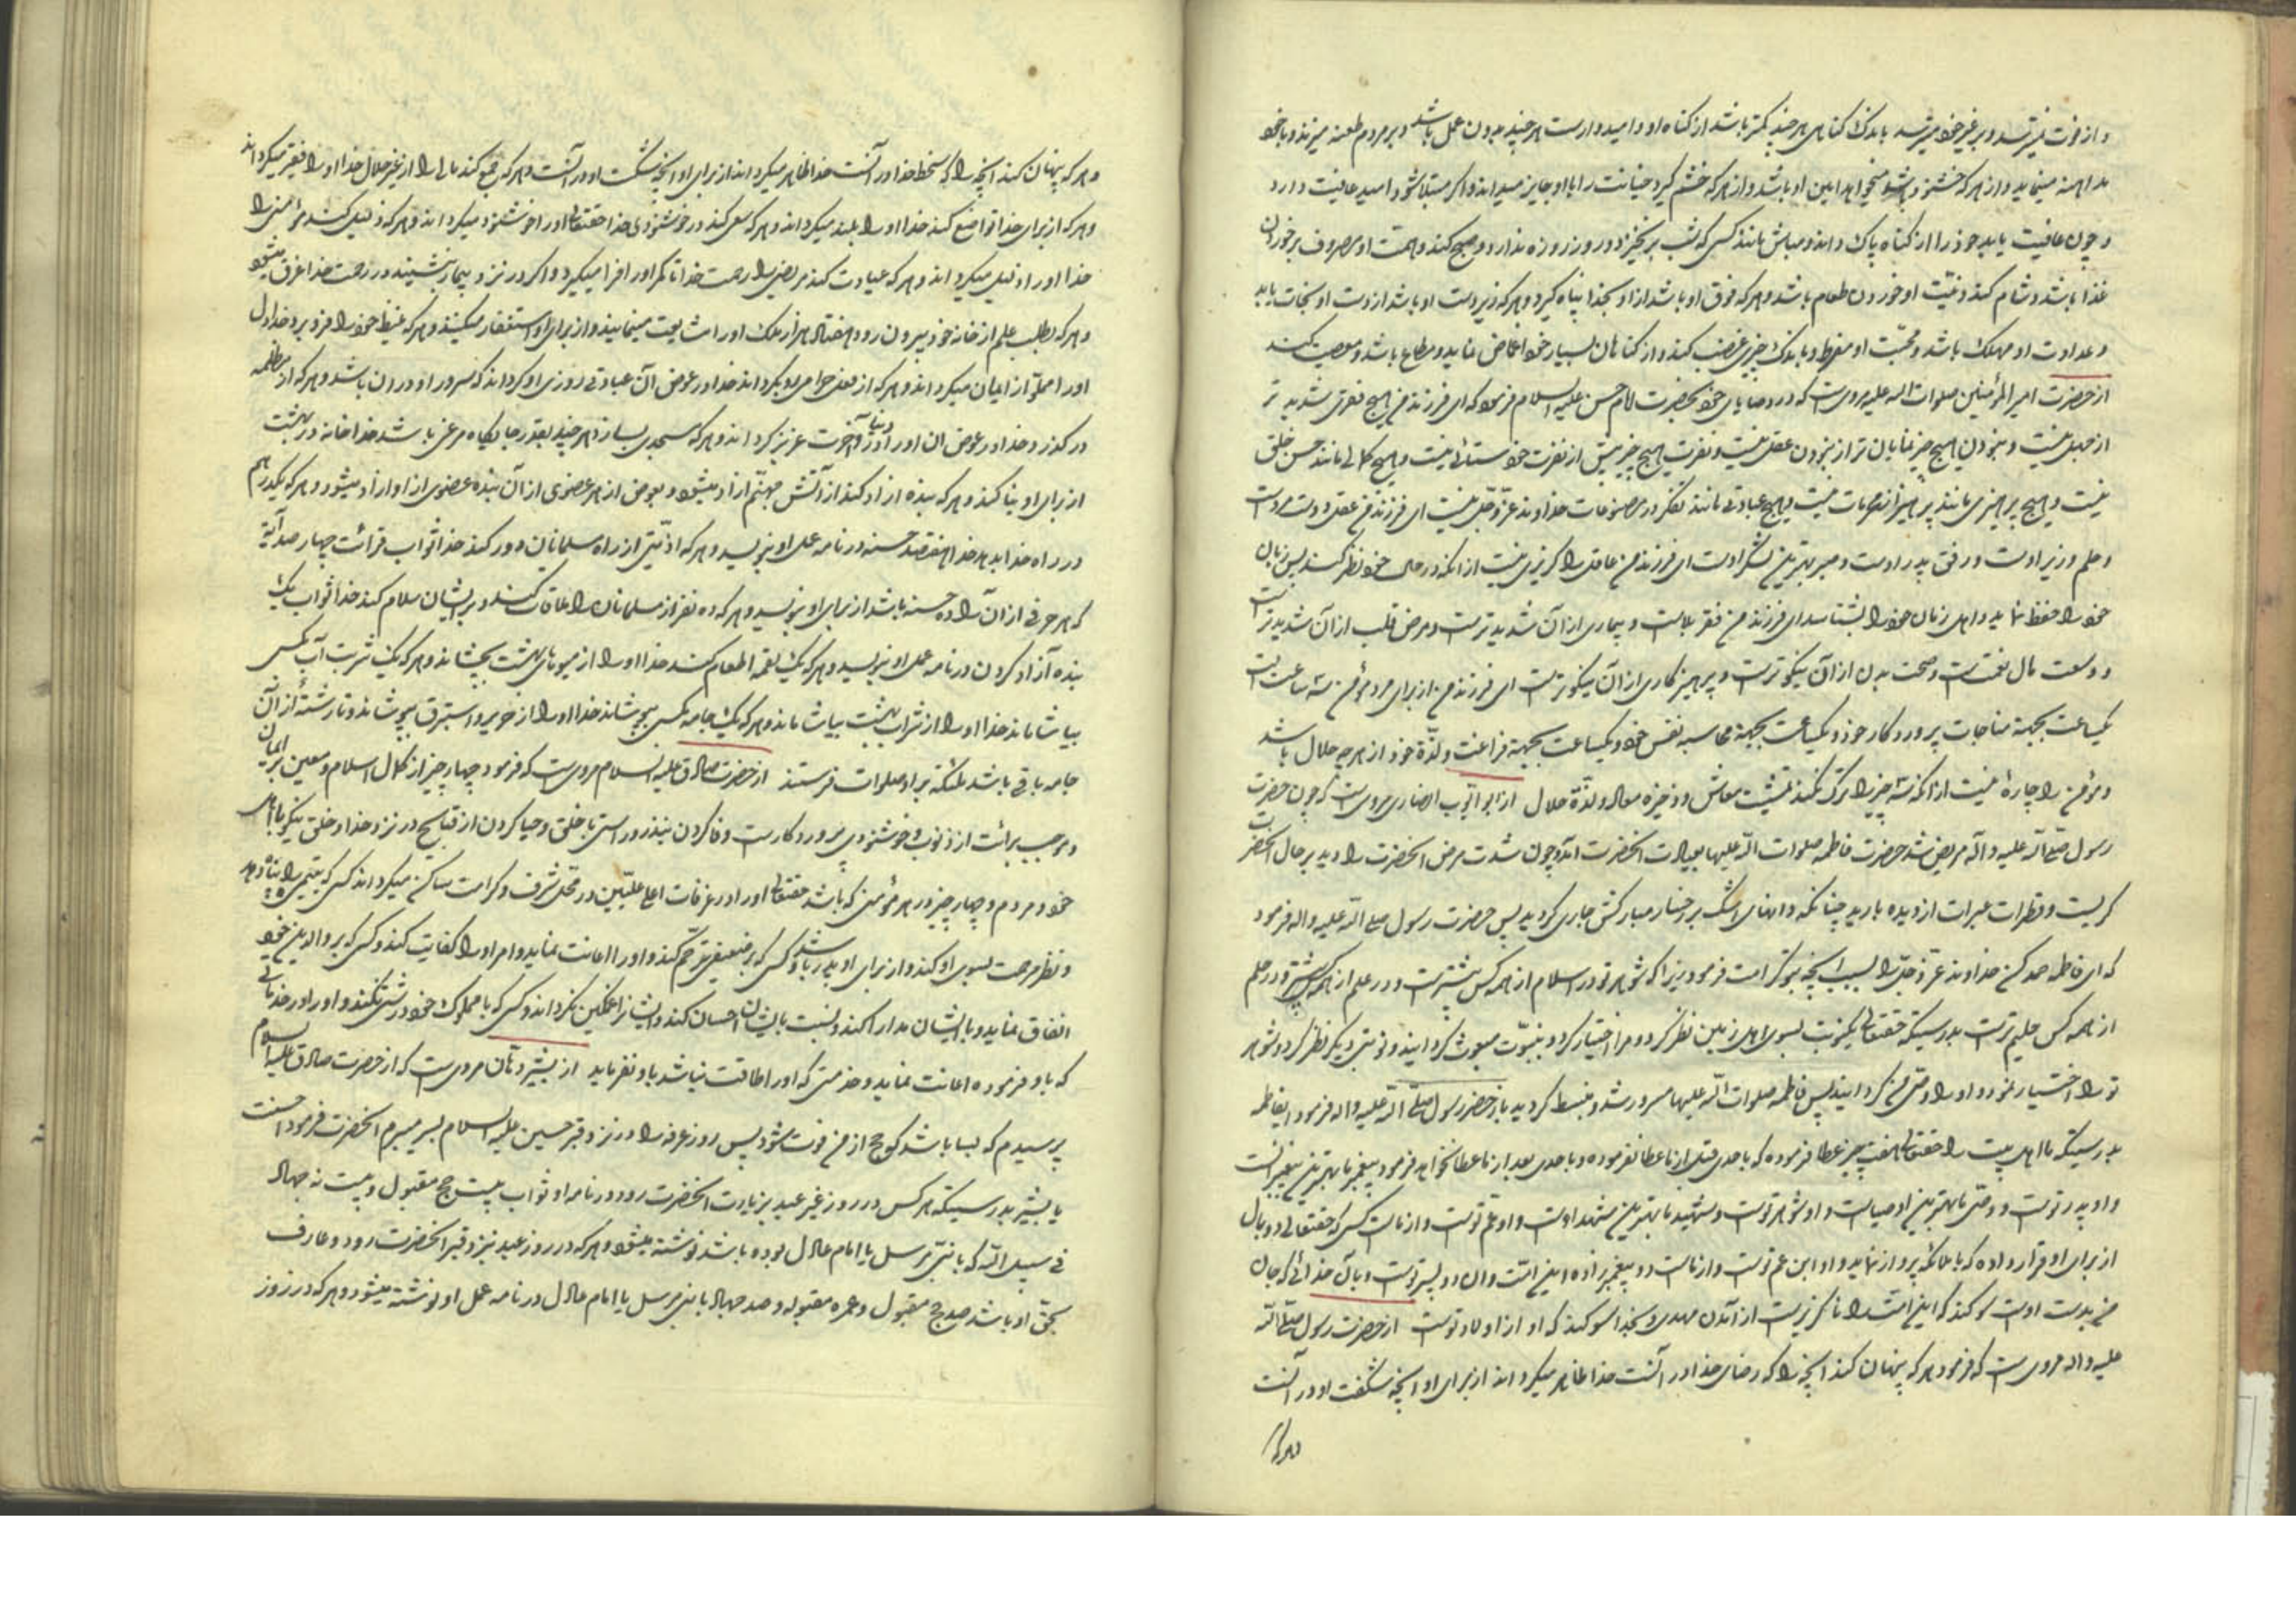 و از فوت نمیترسد و بر غیر خود میترسد باندک گناهی هر چند کمتر باشد از گناه او و امیدوارست هر چند بدون عمل باشد و بر مردم طعنه میزند و با خود
مداهنه مینماید و از هر که خشنود باشد میخواهد امین او باشد و از هر که خشم گیرد خیانت را با او جایز میداند و اگر مبتلا شود امید عافیت دارد
و چون عافیت یابد خود را از گناه پاک داند و مباش مانند کسی که شب برنخیزد و در روز روزه ندارد و صبح کند و همت او مصروف بر خوردن
غذا باشد و شام کند و نیّت او خوردن طعام باشد و هر که فوق او باشد از او بخدا پناه گیرد و هر که زیر دست او باشد از دست او نجات یابد
و عداوت او مهلک باشد و محبّت او مفرط و باندک چیزی غضب کند و از گناهان بسیار خود اغماض نماید و مطاع باشد و معصیت کند
از حضرت امیر المؤمنین صلوات اله علیه مرویست که در وصایای خود بحضرت امام حسن علیه السلام فرمود که ای فرزند من هیچ فقری شدیدتر
از جهل نیست و نبودن هیچ چیز نمایان تر از نبودن عقل نیست و نفرت هیچ چیز بیش از نفرت خودستائی نیست و هیچ کمالی مانند حسن خلق
نیست و هیچ پرهیزی مانند پرهیز از محرمات نیست و هیچ عبادتی مانند تفکر در مصنوعات خداوند عزّ و جلّ نیست ای فرزند من عقل دوست مردست
و حلم وزیر اوست و رفق پدر اوست و صبر بهترین لشکر اوست ای فرزند من عاقل را گریزی نیست از انکه در حال خود نظر کند پس زبان
خود را حفظ نماید و اهل زمان خود را بشناسد ای فرزند من فقر بلاست و بیماری از آن شدیدترست و مرض قلب از آن شدیدتر است
و وسعت مال نعمتست و صحت بدن از آن نیکوترست و پرهیزکاری از آن نیکوترست ای فرزند من از برای مرد مؤمن سه ساعتست
یکساعت بجهة مناجات پروردگار خود و یکساعت بجهة محاسبه نفس خود و یکساعت بجهة فراغت و لذّة خود از هر چه حلال باشد
و مؤمن را چارهٔ نیست از انکه سه چیز را ترک نکند معاش و ذخیره معاد و لذّة حلال از ابو ایّوب انصاری مرویست که چون حضرت
رسول صلی الله علیه و آله مریض شد حضرت فاطمه صلوات الله علیها بعیادت انحضرت آمد و چون شدت مرض انحضرت را دید بر حال انحضرت
گریست و قطرات عبرات از دیده بارید چنانکه دانهای اشک بر رخسار مبارکش جاری گردید پس حضرت رسول صلی الله علیه و اله فرمود
که ای فاطمه حمد کن خداوند عز و جل را بسبب انچه بتو کرامت فرمود زیرا که شوهر تو در اسلام از همه کس پیشترست و در علم از همه کس بیشتر و در حلم
از همه کس حلیم ترست بدرستیکه حقتعالی یکنوبت بسوی اهل زمین نظر کرد و مرا اختیار کرد و بنبوّت مبعوث گردانید و نوبتی دیگر نظر کرد و شوهر
تو را اختیار نمود و او را وصی من گردانید پس فاطمه صلوات الله علیها مسرور شد و منبسط گردید باز حضرت رسول صلی الله علیه و اله فرمود ایفاطمه
بدرستیکه ما اهل بیت را حقتعالی هفت چیز عطا فرموده که باحدی قبل از ما عطا نفرموده و باحدی بعد از ما عطا نخواهد فرمود پیغمبر ما بهترین پیغمبرانست
و او پدر توست و وصی ما بهترین اوصیاست و او شوهر توست و شهید ما بهترین شهداست و او عم توست و از ماست کسی که حقتعالی دو بال
از برای او قرار داده که با ملائکه پرواز نماید و او ابن عم توست و از ماست دو پیغمبرزاده این امّت و ان دو پسر توست و بآن خدائی که جان
من بدست اوست سوگند که این امّت را ناگزیرست از آمدن مهدی و بخدا سوگند که او از اولاد توست از حضرت رسول صلی الله
علیه و اله مرویست که فرمود هر که پنهان کند انچه را که رضای خدا در آنست خدا ظاهر میگرداند از برای او انچه شگفت او در آنست
و هر که
و هر که پنهان کند انچه را که سخط خدا در آنست خدا ظاهر میگرداند از برای او انچه شکست او در آنست و هر که جمع کند مالی را از غیر حلال خدا او را فقیر میگرداند
و هر که از برای خدا تواضع کند خدا او را بلند میگرداند و هر که سعی کند در خوشنودی خدا حقتعالی او را خوشنود میگرداند و هر که ذلیل کند مؤمنی را
خدا او را ذلیل میگرداند و هر که عیادت کند مریضی را رحمت خدا تا کمر او را فرا میگیرد و اگر در نزد بیمار بنشیند در رحمت خدا غرق میشود
و هر که بطلب علم از خانه خود بیرون رود هفتاد هزار ملک او را مشایعت مینمایند و از برای او استغفار میکنند و هر که غیظ خود را فرو برد خدا دل
او را مملوّ از ایمان میگرداند و هر که از فعل حرامی رو بگرداند خدا در عوض آن عبادتی روزی او گرداند که سرور او در ان باشد و هر که از مظلمه
درگذرد خدا در عوض ان او را در دنیا و آخرت عزیز گرداند و هر که مسجدی بسازد هر چند بقدر جایگاه مرغی باشد خدا خانه در بهشت
از برای او بنا کند و هر که بنده ازاد کند از آتش جهنّم ازاد میشود و بعوض از هر عضوی از آن بنده عضوی از او ازاد میشود و هر که یکدرهم
در راه خدا بدهد خدا هفتصد حسنه در نامه عمل او بنویسد و هر که اذیّتی از راه مسلمانان دور کند خدا ثواب قرائت چهار صد آیة
که هر حرفی از ان را ده حسنه باشد از برای او بنویسد و هر که ده نفر از مسلمانان را ملاقات کند و بر ایشان سلام کند خدا ثواب یک
بنده آزاد کردن در نامه عمل او بنویسد و هر که یک لقمه اطعام کند خدا او را از میوهای بهشت بچشاند و هر که یک شربت آب بکسی
بیاشاماند خدا او را از شراب بهشت بیاشاماند و هر که یک جامه بکسی بپوشاند خدا او را از حریر و استبرق بپوشاند و تا رشتهٔ از آن
جامه باقی باشد ملئکة بر او صلوات فرستند از حضرت صادق علیه السلام مرویست که فرمود چهار چیز از کمال اسلام و معین بر ایمان
و موجب برائت از ذنوب و خوشنودی پروردگارست وفا کردن بنذر و راستی با خلق و حیا کردن از قبایح در نزد خدا و خلق نیکو با اهل
خود و مردم و چهار چیز در هر مؤمنی که باشد حقتعالی او را در غرفات اعلی علیّین در محل شرف و کرامت ساکن میگرداند کسی که یتیمی را پناه دهد
و نظر مرحمت بسوی او کند و از برای او پدر باشد و کسی که بر ضعیفی ترحّم کند و او را اعانت نماید و امر او را کفایت کند و کسی که بر والدین خود
انفاق نماید و با ایشان مدارا کند و نسبت بایشان احسان کند و ایشانرا غمگین نگرداند و کسی که با مملوک خود درشتی نکند و او را در خدماتی
که باو فرموده اعانت نماید و خدمتی که او را طاقت نباشد باو نفرماید از بشیر دهّان مرویست که از حضرت صادق علیه السلام
پرسیدم که بسا باشد که حج از من فوت شود پس روز عرفه را در نزد قبر حسین علیه السلام بسر میبرم انحضرت فرمود احسنت
یا بشیر بدرستیکه هر کس در روز غیر عید بزیارت انحضرت رود در نامه او ثواب بیست حج مقبول و بیست نه جهاد
فی سبیل الله که با نبی مرسل یا امام عادل بوده باشد نوشته میشود و هر که در روز عید بنزد قبر انحضرت رود و عارف
بحق او باشد صد حج مقبول و عمره مقبوله و صد جهاد با نبی مرسل یا امام عادل در نامه عمل او نوشته میشود و هر که در روز